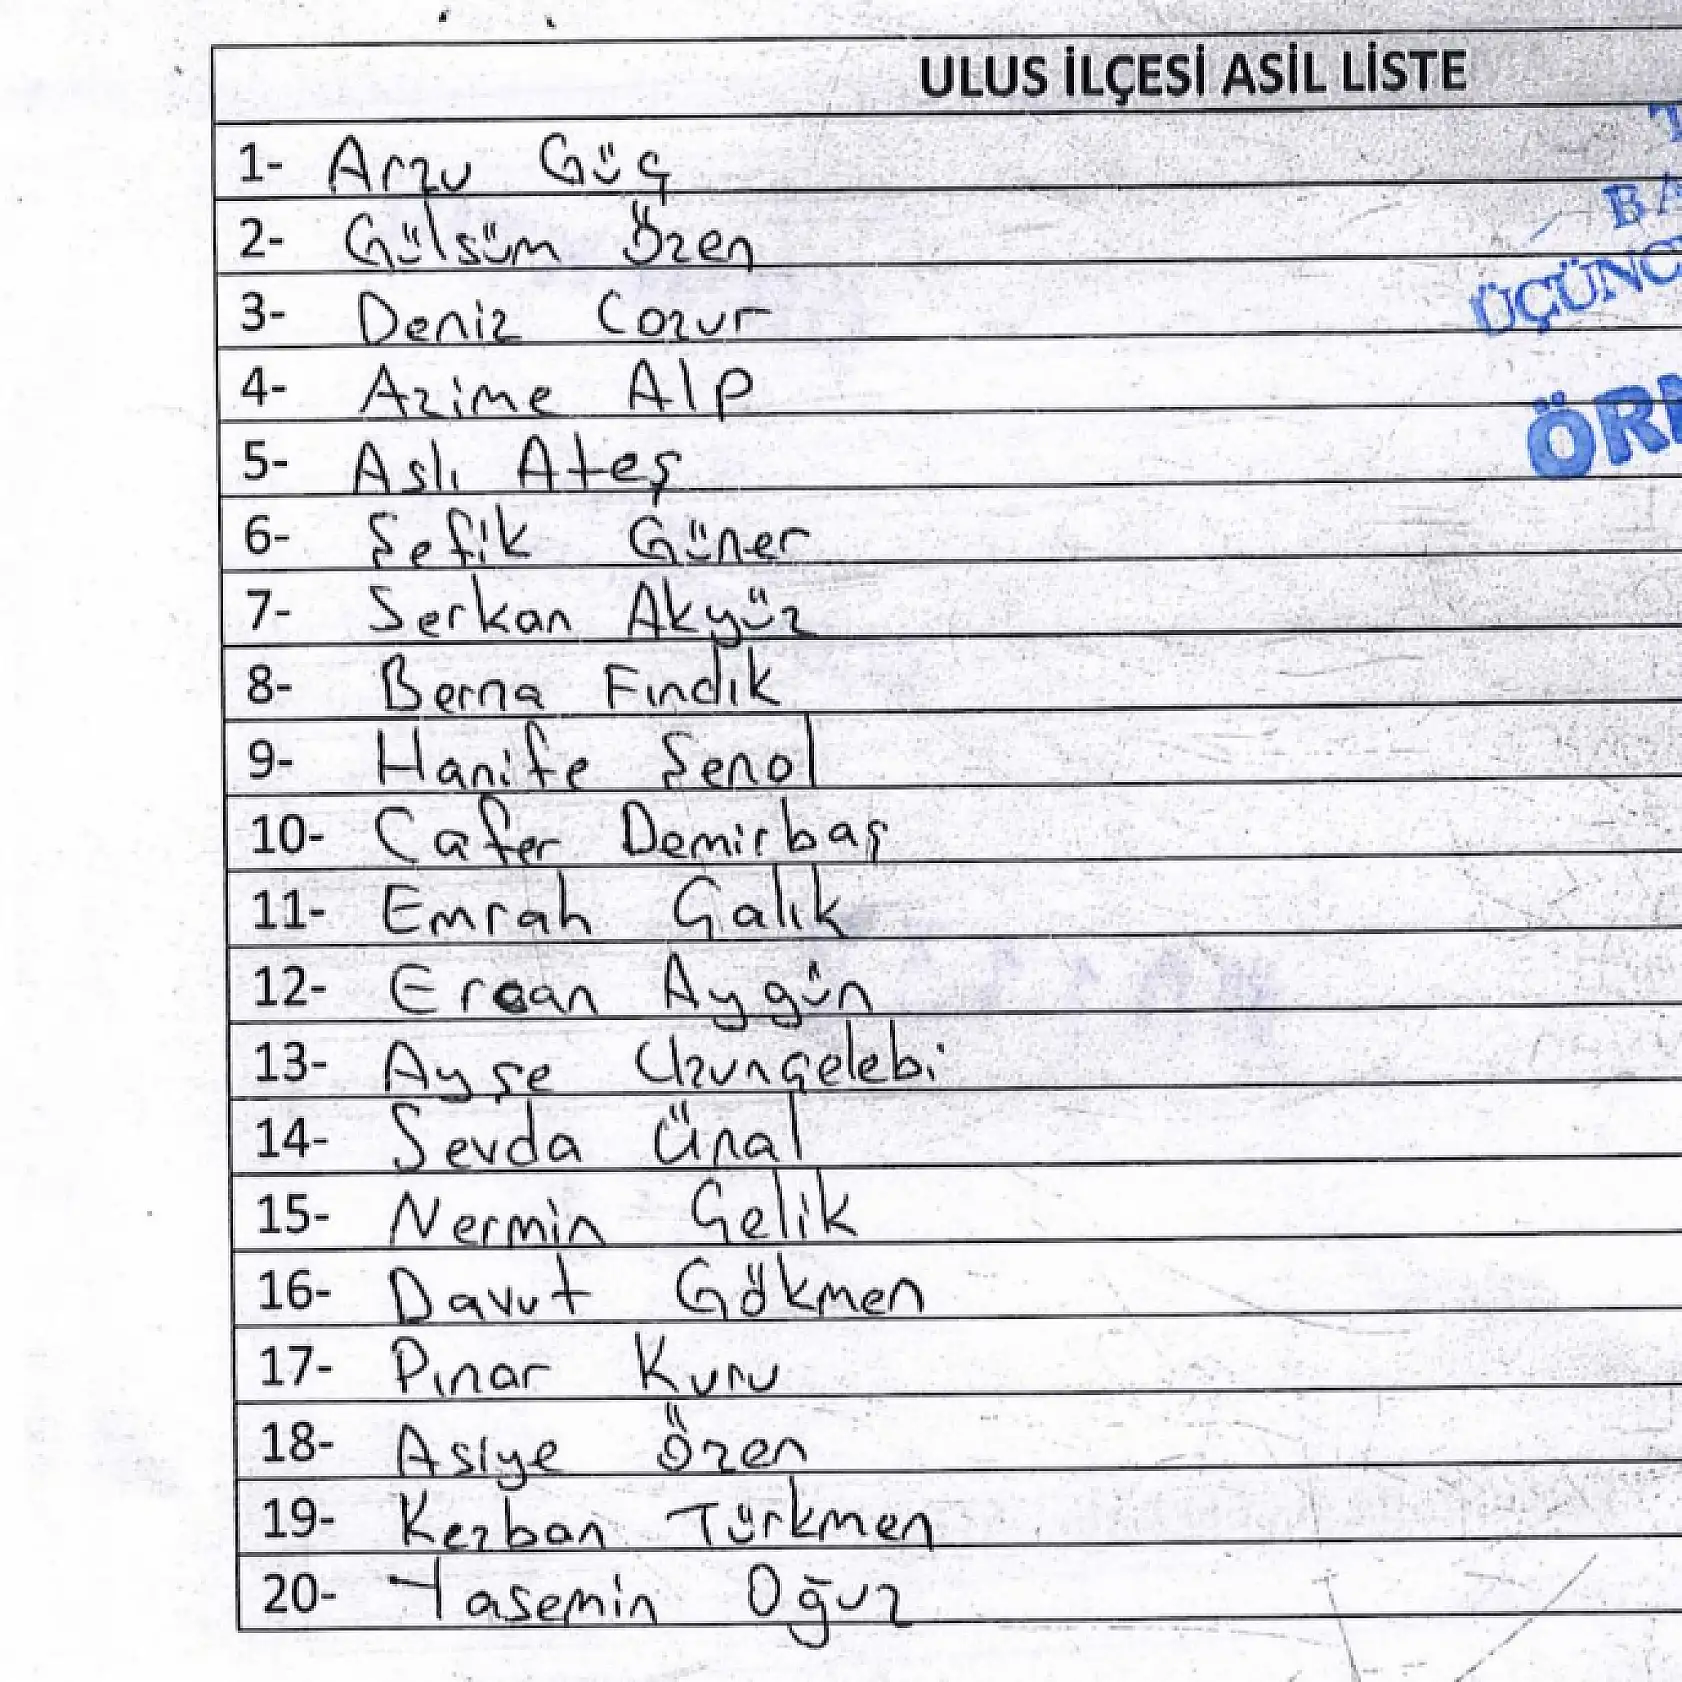 ULUS İLÇESİ ASİL LİSTE
1- Arzu Güç
2- Gülsüm Özen
3- Deniz Cozur
4- Azime Alp
5- Aslı Ateş
6- Şefik Güner
7- Serkan Akyüz
8- Berna Fındık
9- Hanife Şenol
10- Cafer Demirbaş
11- Emrah Çalık
12- Ercan Aygün
13- Ayşe Uzunçelebi
14- Sevda Ünal
15- Nermin Çelik
16- Davut Gökmen
17- Pınar Kuru
18- Asiye Özen
19- Kezban Türkmen
20- Yasemin Oğuz